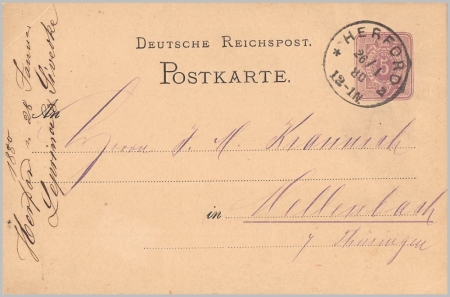 DEUTSCHE REICHSPOST.
POSTKARTE.
* HERFORD *
26/1
80
12-1N.
5
An
Herrn J. M. Krannich
in Mellenbach
Thüringen
1880
Herford 26 Januar